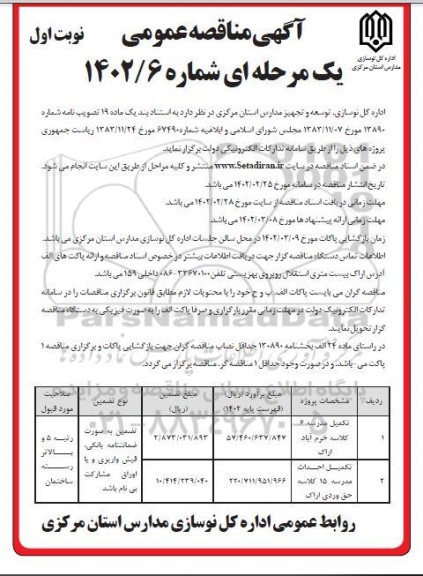 آگهی مناقصه عمومی
نوبت اول
یک مرحله ای شماره ۱۴۰۲/۶
اداره کل نوسازی
مدارس استان مرکزی
اداره کل نوسازی، توسعه و تجهیز مدارس استان مرکزی در نظر دارد به استناد بند یک ماده ۱۹ تصویب نامه شماره
۱۳۸۹۰ مورخ ۱۳۸۳/۱۱/۰۷ مجلس شورای اسلامی و ابلاغیه شماره ۶۷۴۹۰ مورخ ۱۳۸۳/۱۱/۲۴ ریاست جمهوری
پروژه های ذیل را از طریق سامانه تدارکات الکترونیکی دولت برگزار نماید.
در ضمن اسناد مناقصه در سایت www.Setadiran.ir منتشر و کلیه مراحل از طریق این سایت انجام می شود.
تاریخ انتشار مناقصه در سامانه مورخ ۱۴۰۲/۰۲/۲۵ می باشد.
مهلت زمانی دریافت اسناد مناقصه از سایت مورخ ۱۴۰۲/۰۲/۲۸ می باشد.
مهلت زمانی ارائه پیشنهاد ها مورخ ۱۴۰۲/۰۳/۰۸ می باشد.
زمان بازگشایی پاکات مورخ ۱۴۰۲/۰۳/۰۹ در محل سالن جلسات اداره کل نوسازی مدارس استان مرکزی می باشد.
اطلاعات تماس دستگاه مناقصه گزار جهت دریافت اطلاعات بیشتر در خصوص اسناد مناقصه و ارائه پاکت های الف
آدرس اراک بیست متری استقلال روبروی بهزیستی تلفن ۳۳۶۷۰۱۰۰-۰۸۶ داخلی ۱۵۹ می باشد.
مناقصه گران می بایست پاکات الف، ب و ج خود را با محتویات لازم مطابق قانون برگزاری مناقصات را در سامانه
تدارکات الکترونیک دولت در مهلت زمانی مقرر بارگزاری و صرفا پاکت الف را به صورت فیزیکی به دستگاه مناقصه
گزار تحویل نمایند.
در راستای ماده ۲۴ الف بخشنامه ۱۳۰۸۹۰ حداقل نصاب مناقصه گران جهت بازگشایی پاکات و برگزاری مناقصه ۱
پاکت می باشد. و در صورت وجود حداقل ۱ مناقصه گر، مناقصه برگزار می گردد.
ردیف | مشخصات پروژه | مبلغ برآورد (ریال) (فهرست پایه ۱۴۰۲) | مبلغ تضمین (ریال) | نوع تضمین | صلاحیت مورد قبول
۱ | تکمیل مدرسه ۶ کلاسه خرم آباد اراک | ۵۷/۴۶۰/۶۳۷/۸۴۷ | ۲/۸۷۳/۰۳۱/۸۹۳ | تضمین به صورت ضمانتنامه بانکی، فیش واریزی و یا اوراق مشارکت بی نام باشد | رتبه ۵ و بالاتر رسته ساختمان
۲ | تکمیل احداث مدرسه ۱۵ کلاسه حق وردی اراک | ۲۲۰/۷۱۱/۹۵۱/۹۶۶ | ۱۰/۴۱۴/۲۳۹/۰۴۰
روابط عمومی اداره کل نوسازی مدارس استان مرکزی
ParsNamadData
۰۲۱-۸۸۳۴۹۶۷۰-۵